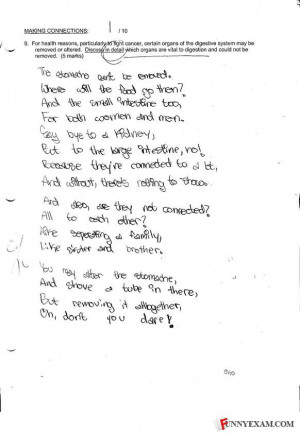 MAKING CONNECTIONS: 1 / 10
9. For health reasons, particularly to fight cancer, certain organs of the digestive system may be
removed or altered. Discuss in detail which organs are vital to digestion and could not be
removed. (5 marks)
The stomache can't be removed.
Where will the food go then?
And the small intestine too,
For both women and men.
Say bye to a kidney,
But to the large intestine, no!
Because they're conneted to a bit,
And without, there's nothing to
And also, are they not connected?
All to each other?
Like seperating a family,
Like sister and brother.
You may alter the stomache,
And shove a tube in there,
But removing it alltogether,
Oh, don't you dare!
FUNNYEXAM.COM